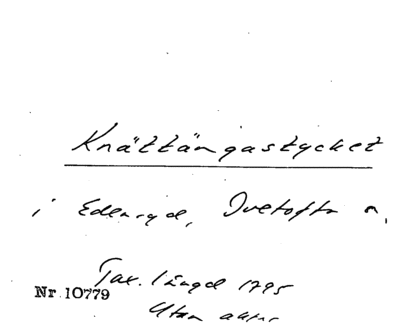 Knättängastycket
i Edenryd, Ivetofta s.
Tax. längd 1795
Nr 10779
Utan aktnr